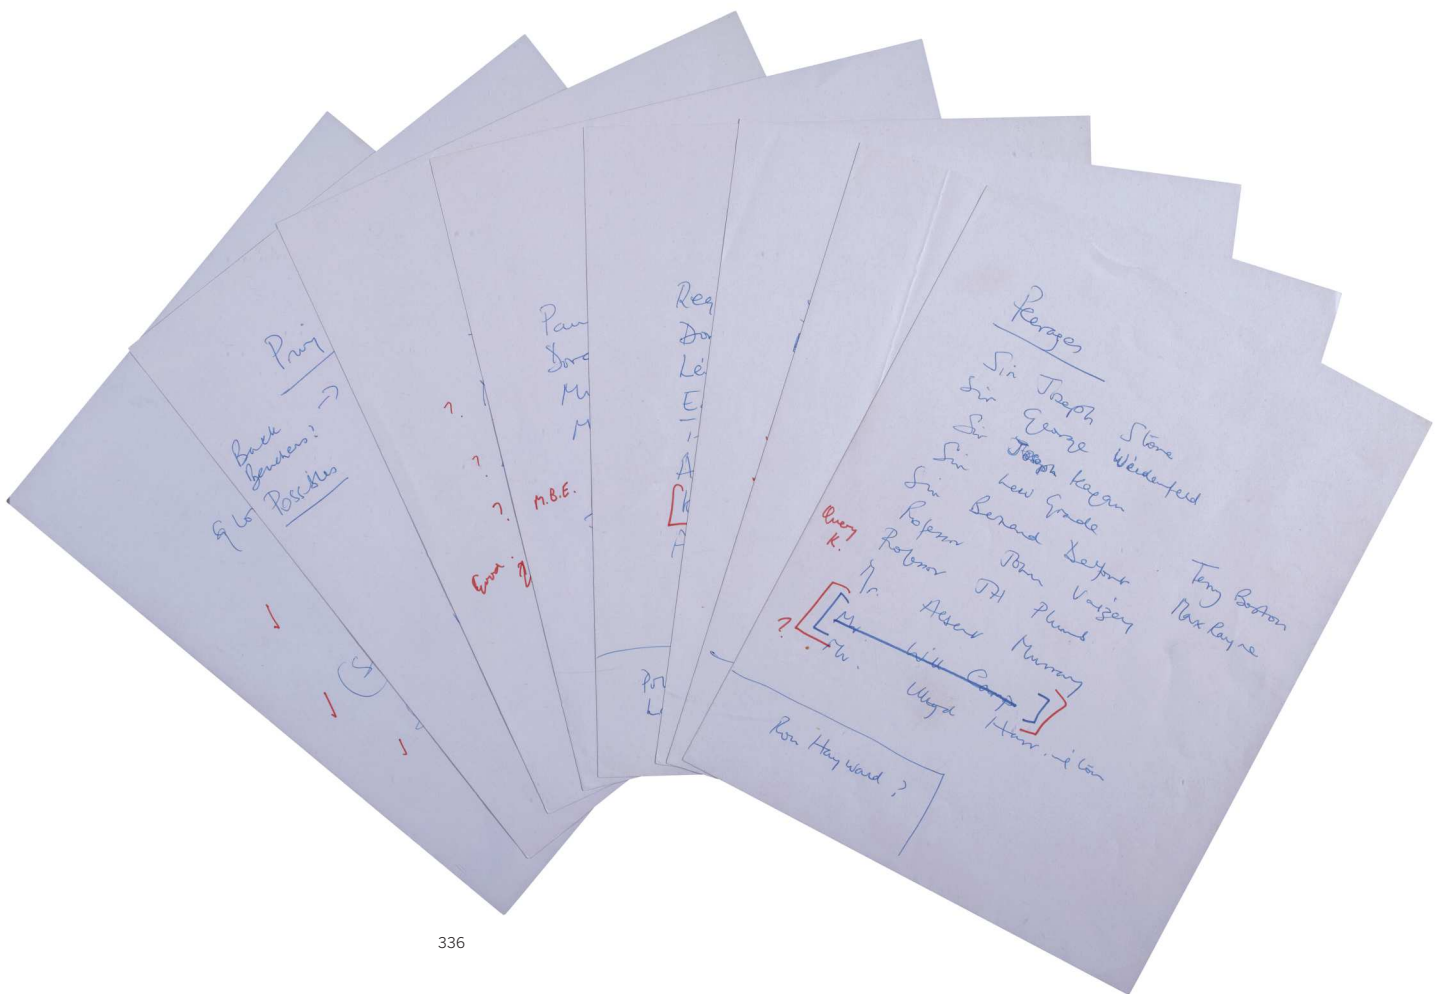 Privi
Back
Benchers?
Possibles
Eg Lo
?
?
?
Good.
?
Pau
Dore
Mr
M
M.B.E.
Reg
Do
Lé
E.
A
Por
L
Peerages
Sir Joseph Stone
Sir George Weidenfeld
Sir Joseph Kagan
Sir Lew Grade
Sir Bernard Delfont
Professor John Vaizey
Professor JH Plumb
Mr. Albert Murray
Mr Will Camp
Mr. Llwyd Harrington
Query
K.
?
Terry Boston
Max Rayne
Ron Hayward?
336